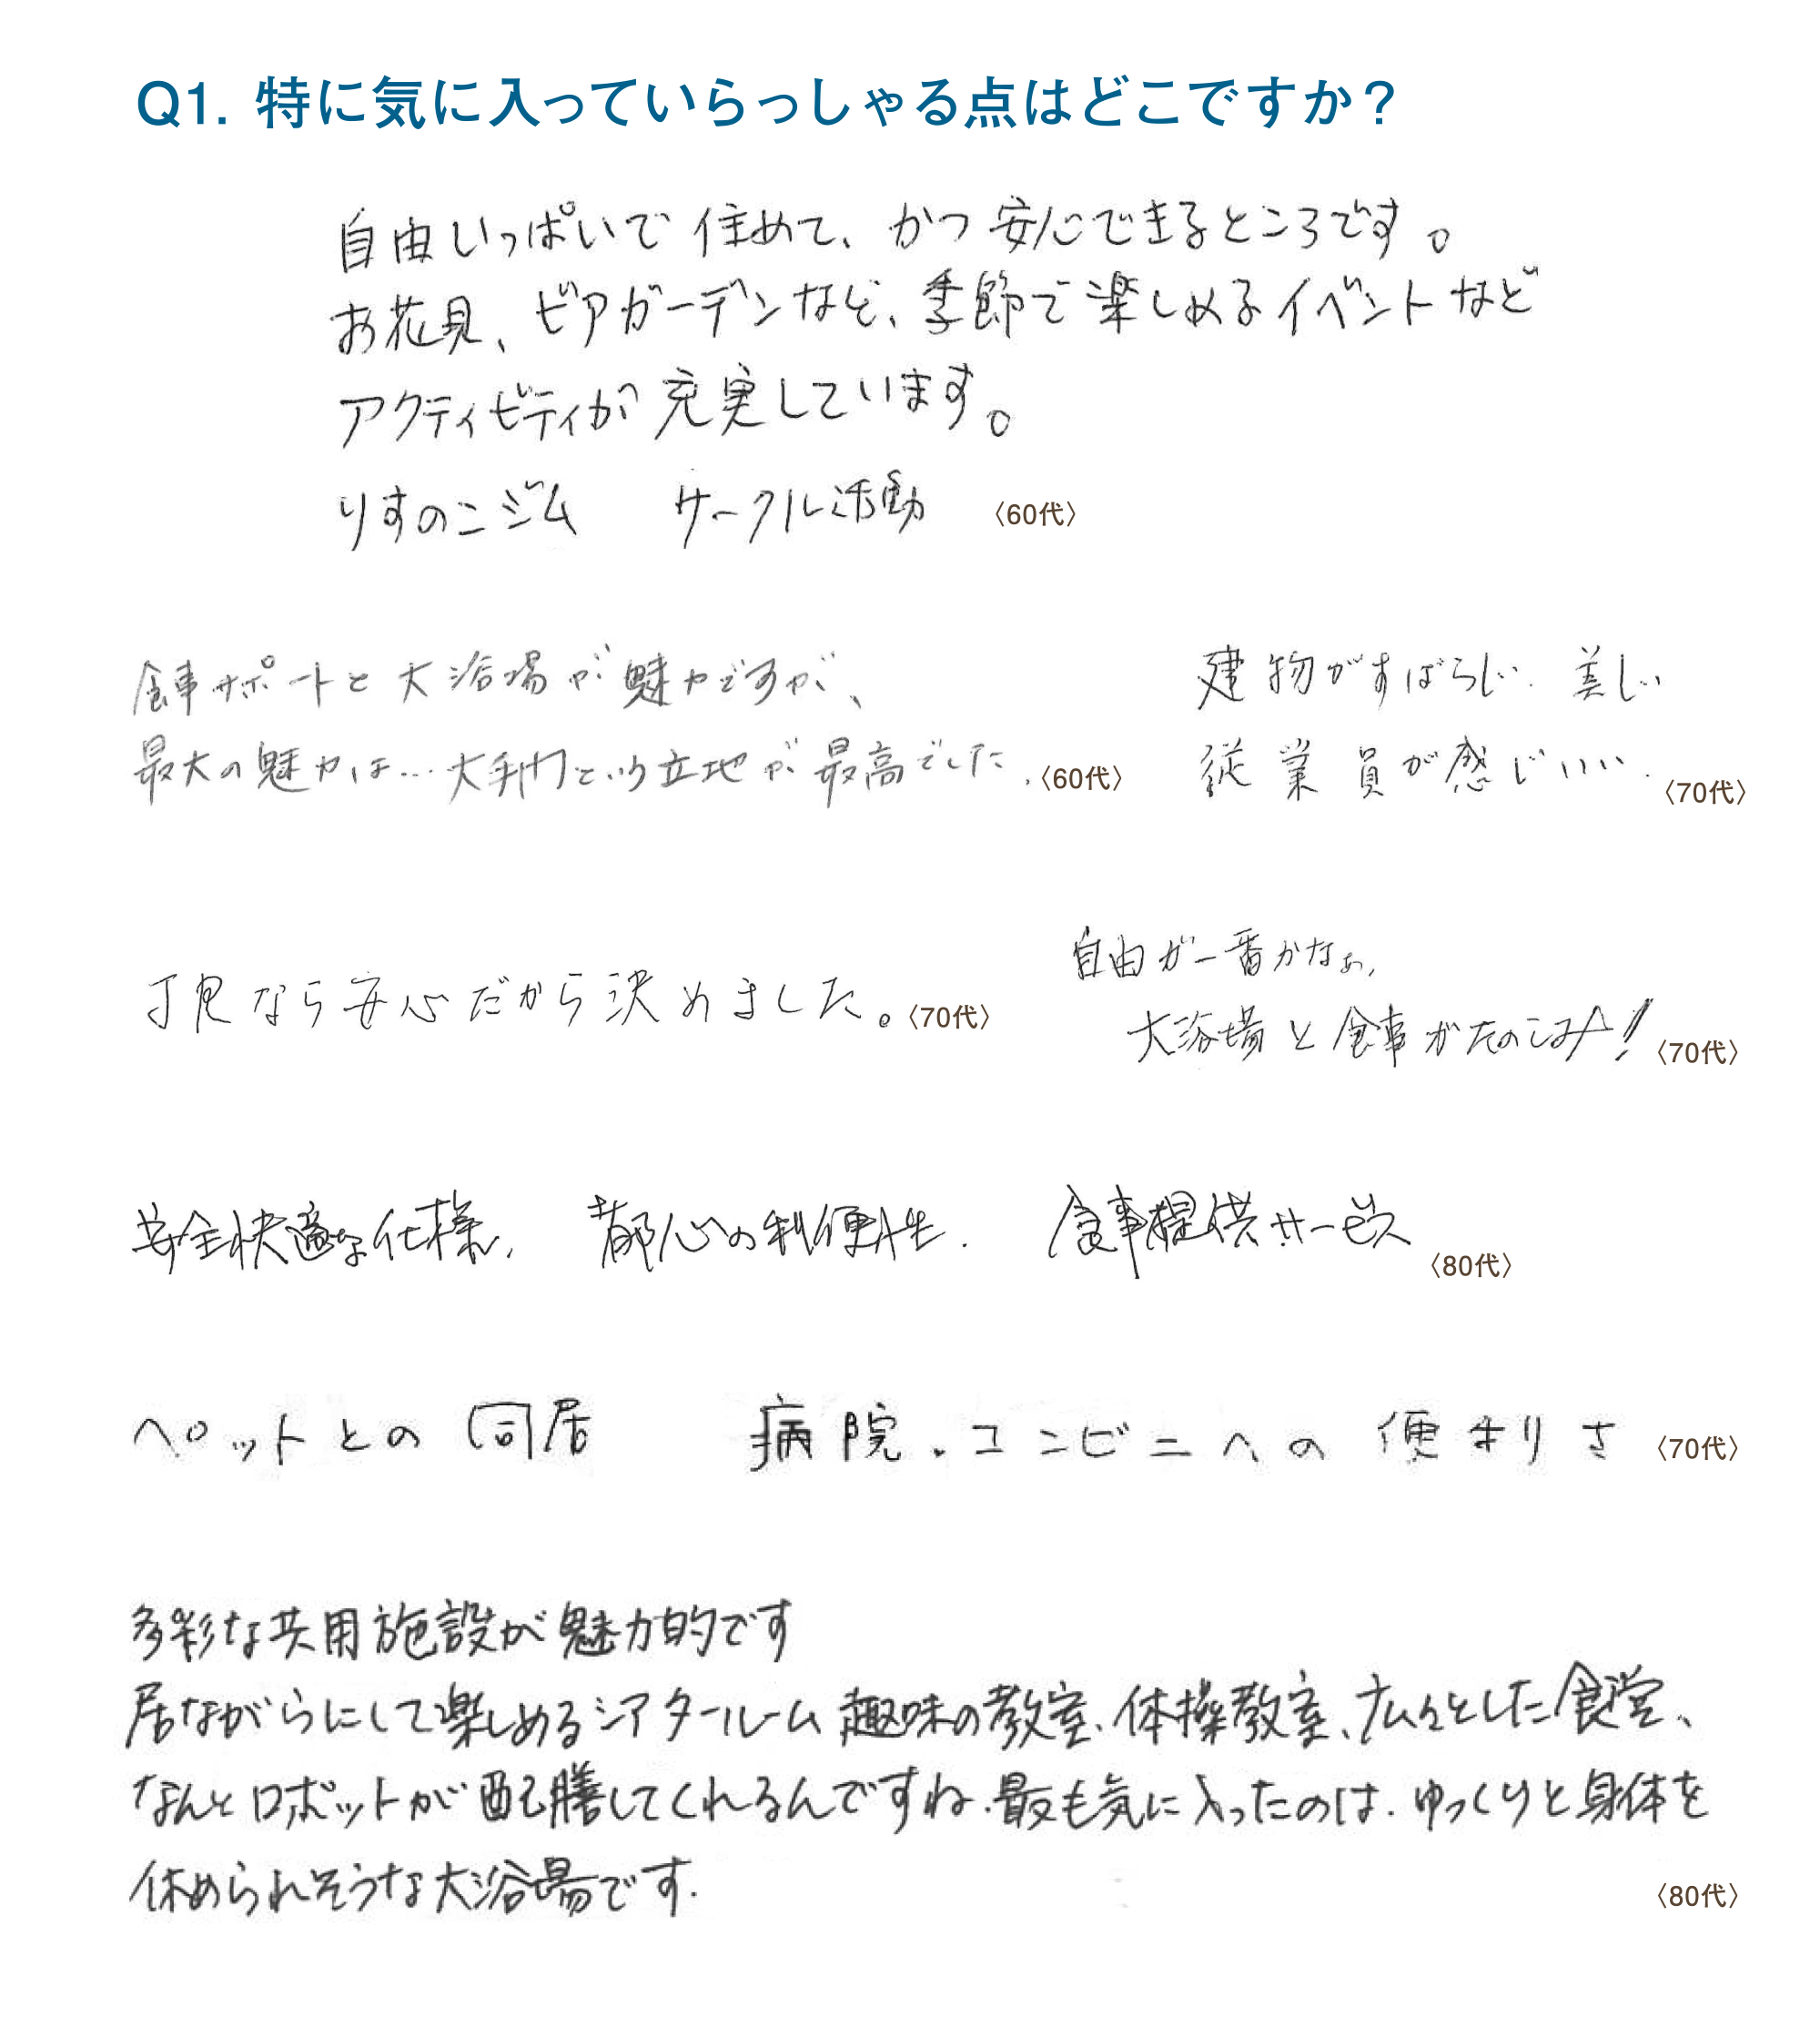 Q1. 特に気に入っていらっしゃる点はどこですか？
自由いっぱいで住めて、かつ安心できるところです。
お花見、ビアガーデンなど、季節で楽しめるイベントなど
アクティビティが充実しています。
りすのこジム　サークル活動 〈60代〉
食事サポートと大浴場が魅力ですが、
最大の魅力は…大手門という立地が最高でした.〈60代〉
建物がすばらしい. 美しい
従業員が感じいい.〈70代〉
なら安心だから決めました。〈70代〉
自由が一番かなぁ、
大浴場と食事がたのしみ!〈70代〉
安全快適な仕様, 都心の利便性. 食事提供サービス〈80代〉
ペットとの同居　病院.コンビニへの便利さ〈70代〉
多彩な共用施設が魅力的です
居ながらにして楽しめるシアタールーム 趣味の教室、体操教室、広々とした食堂、
なんとロボットが配膳してくれるんですね.最も気に入ったのは.ゆっくりと身体を
休められそうな大浴場です.〈80代〉